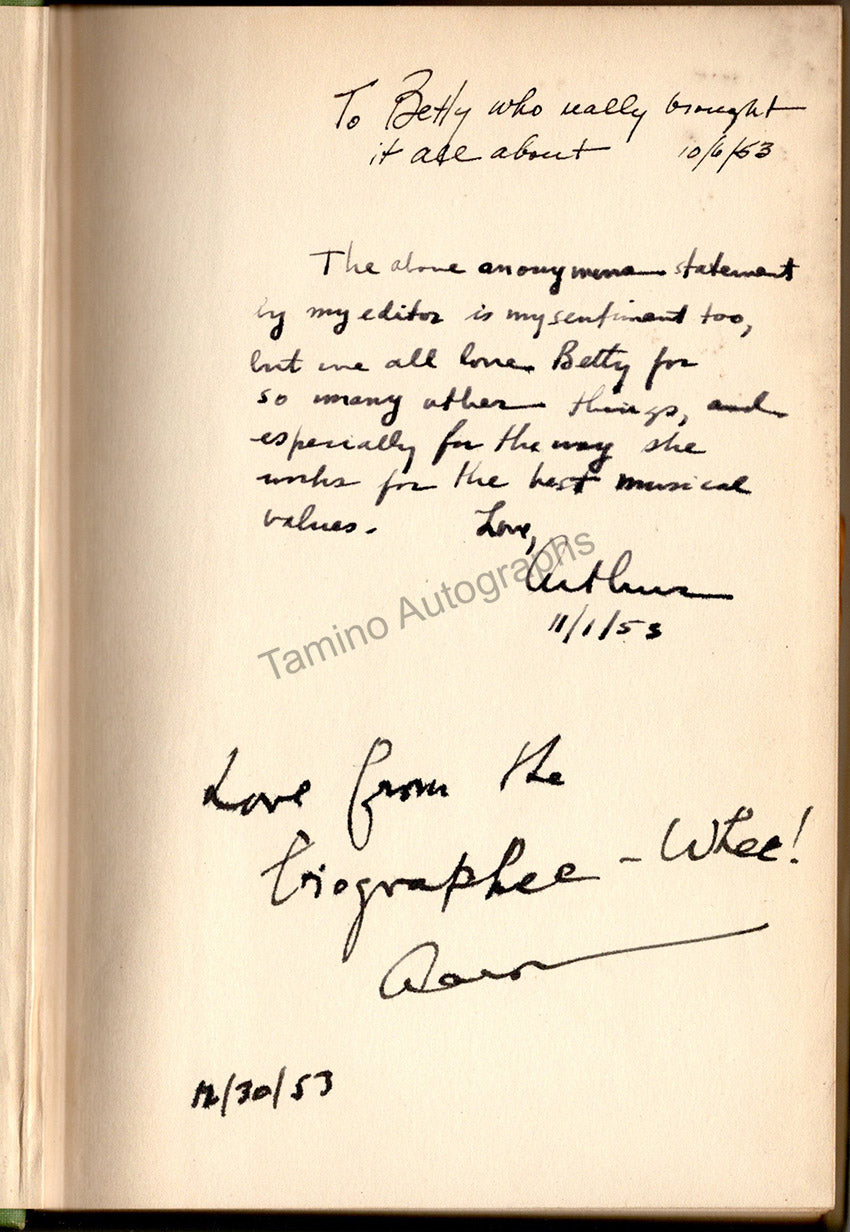 To Betty who really brought
it all about 10/6/53
The above anonymous statement
by my editor is my sentiment too,
but we all love Betty for
so many other things, and
especially for the way she
works for the best musical
values. Love,
Arthur
11/1/53
Tamino Autographs
Love from the
biographee - Whee!
Aaron
12/30/53